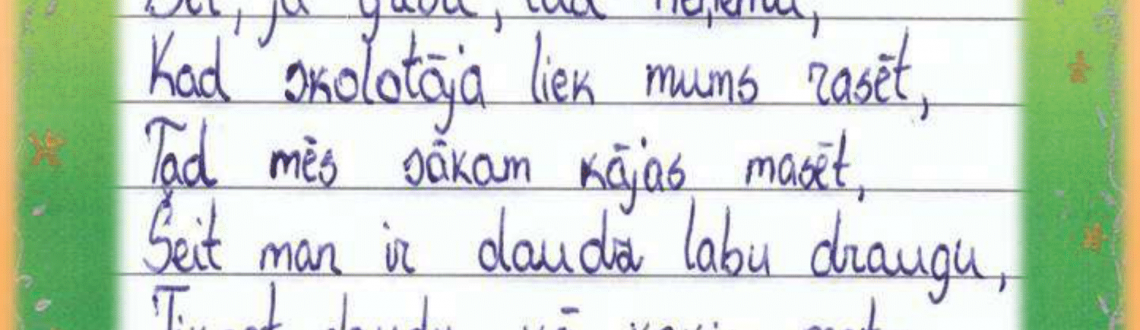 ja tad
Kad skolotāja liek mums rasēt,
Tad mēs sākam kājas masēt,
Šeit man ir daudz labu draugu,